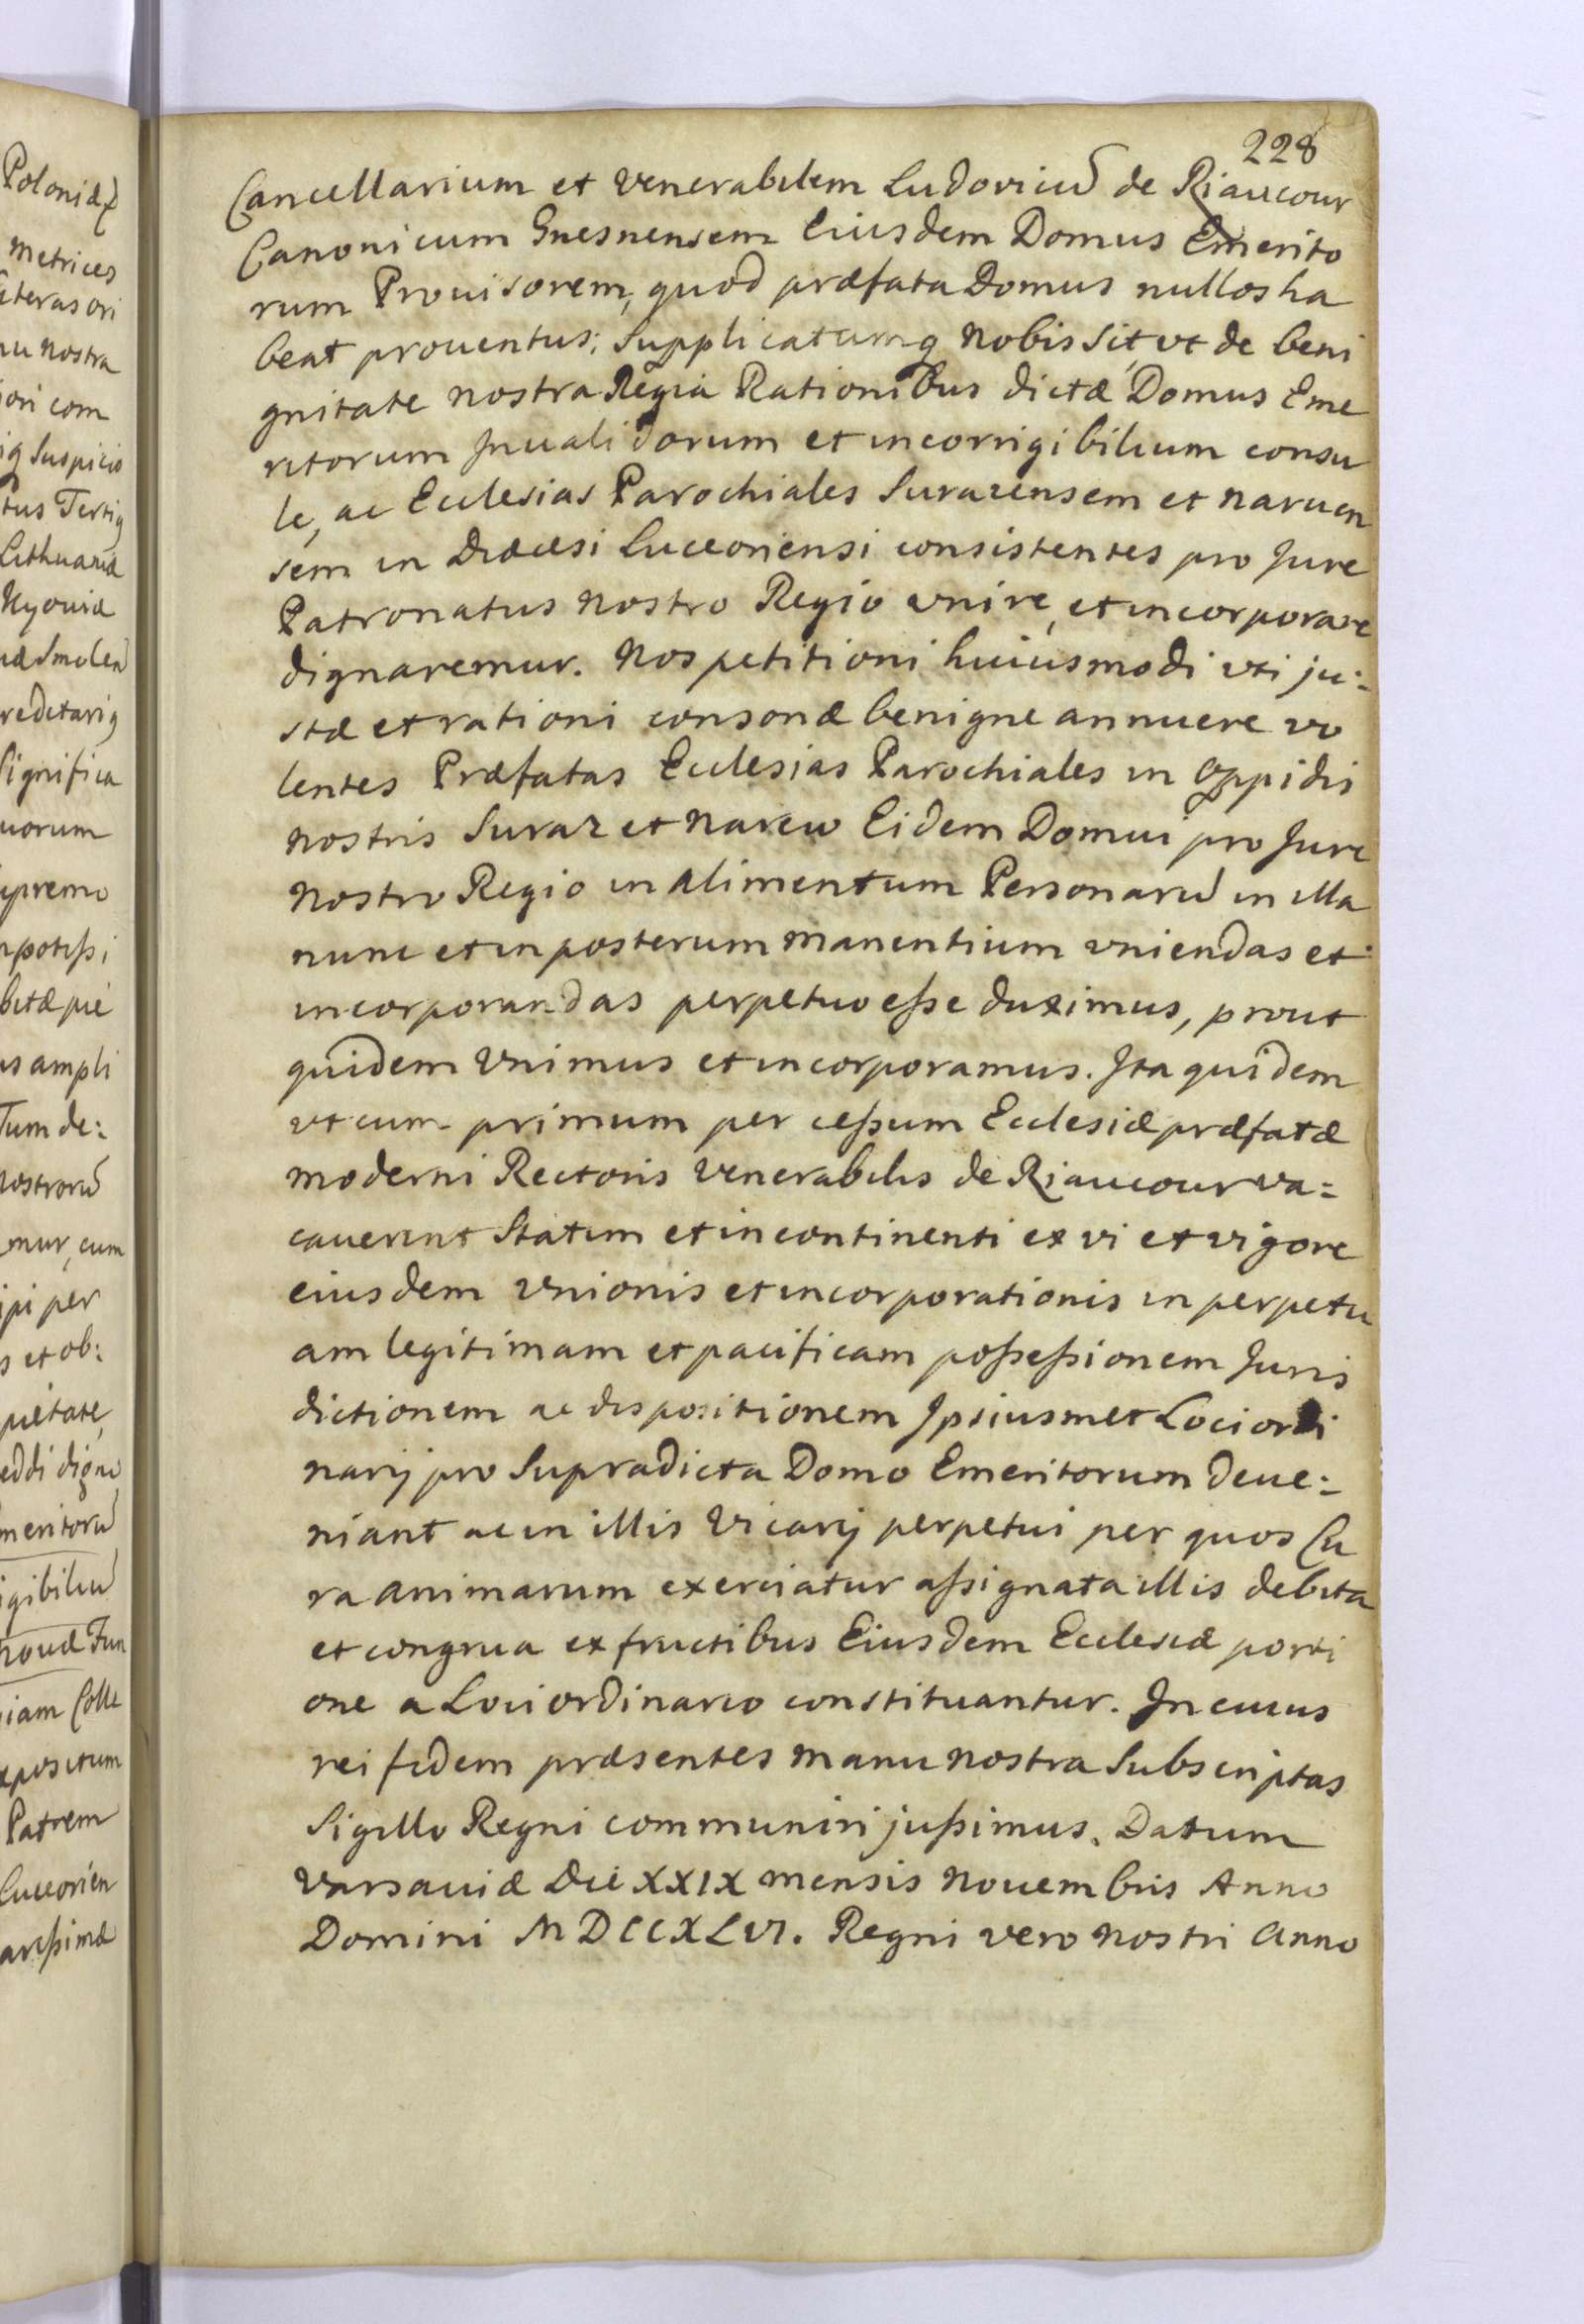 228
Cancellarium et Venerabilem Ludovicũ de Riaucour
Canonicum Gnesnensem Eiusdem Domus Emerito
rum Prouisorem, quod præfata Domus nullos ha
beat prouentus; Supplicatumq nobis sit, vt de beni
gnitate nostra Regia Rationibus dictæ Domus Eme
ritorum Jnualidorum et incorrigibilium consu
le, ac Ecclesias Parochiales Surazensem et naruen
sem in Diæcesi Luceoriensi consistentes pro Jure
Patronatus nostro Regio vnire, et incorporare
dignaremur. Nos petitioni huiusmodi vti ju=
stæ et rationi consonæ benigne annuere vo
lentes Præfatas Ecclesias Parochiales in Oppidis
nostris Suraz et narew Eidem Domui pro Jure
nostro Regio in alimentum Personarũ in illa
nunc et in posterum manentium vniendas et
incorporandas perpetuo eße duximus, prout
quidem Vnimus et incorporamus. Jta quidem
vt cum primum per ceßum Ecclesiæ præfatæ
moderni Rectoris Venerabilis de Riaucour va=
cauerint Statim et in continenti ex vi et vigore
eiusdem Vnionis et incorporationis in perpetu
am legitimam et pacificam poßeßionem Juris
dictionem ac dispositionem Jpsiusmet Loci ordi
narij pro Supradicta Domo Emeritorum deue=
niant ac in illis Vicarij perpetui per quos Cu
ra animarum exerciatur aßignata illis debita
et congrua ex fructibus Eiusdem Ecclesiæ porti
one a Loci ordinario constituantur. In cuius
rei fidem præsentes manu nostra Subscriptas
Sigillo Regni communiri jußimus. Datum
Varsauiæ Die XXIX mensis Nouembris Anno
Domini MDCCXLVI. Regni vero nostri Anno